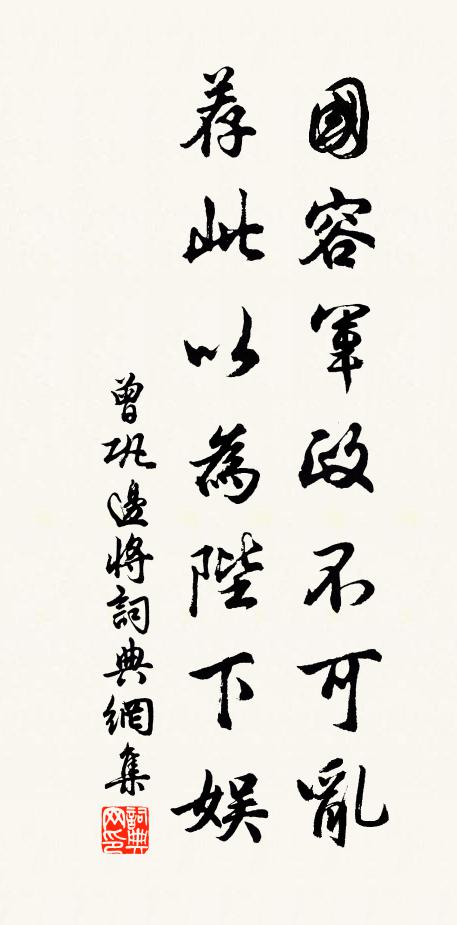 國容軍政不可亂
荐此以為陛下娛
曾巩邊將詞典網集
詞典
网印